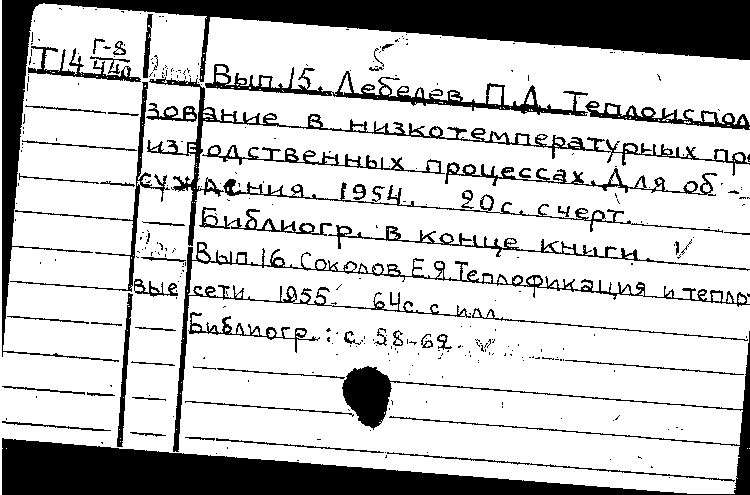 Т14 Г-8/440
Вып.15. Лебедев, П.Д. Теплоисполь
зование в низкотемпературных про
изводственных процессах. Для об-
суждения. 1954. 20с. с черт.
Библиогр. в конце книги.
Вып.16. Соколов, Е.Я. Теплофикация и тепло
вые сети. 1955. 64с. с илл.
Библиогр.: с. 58-62